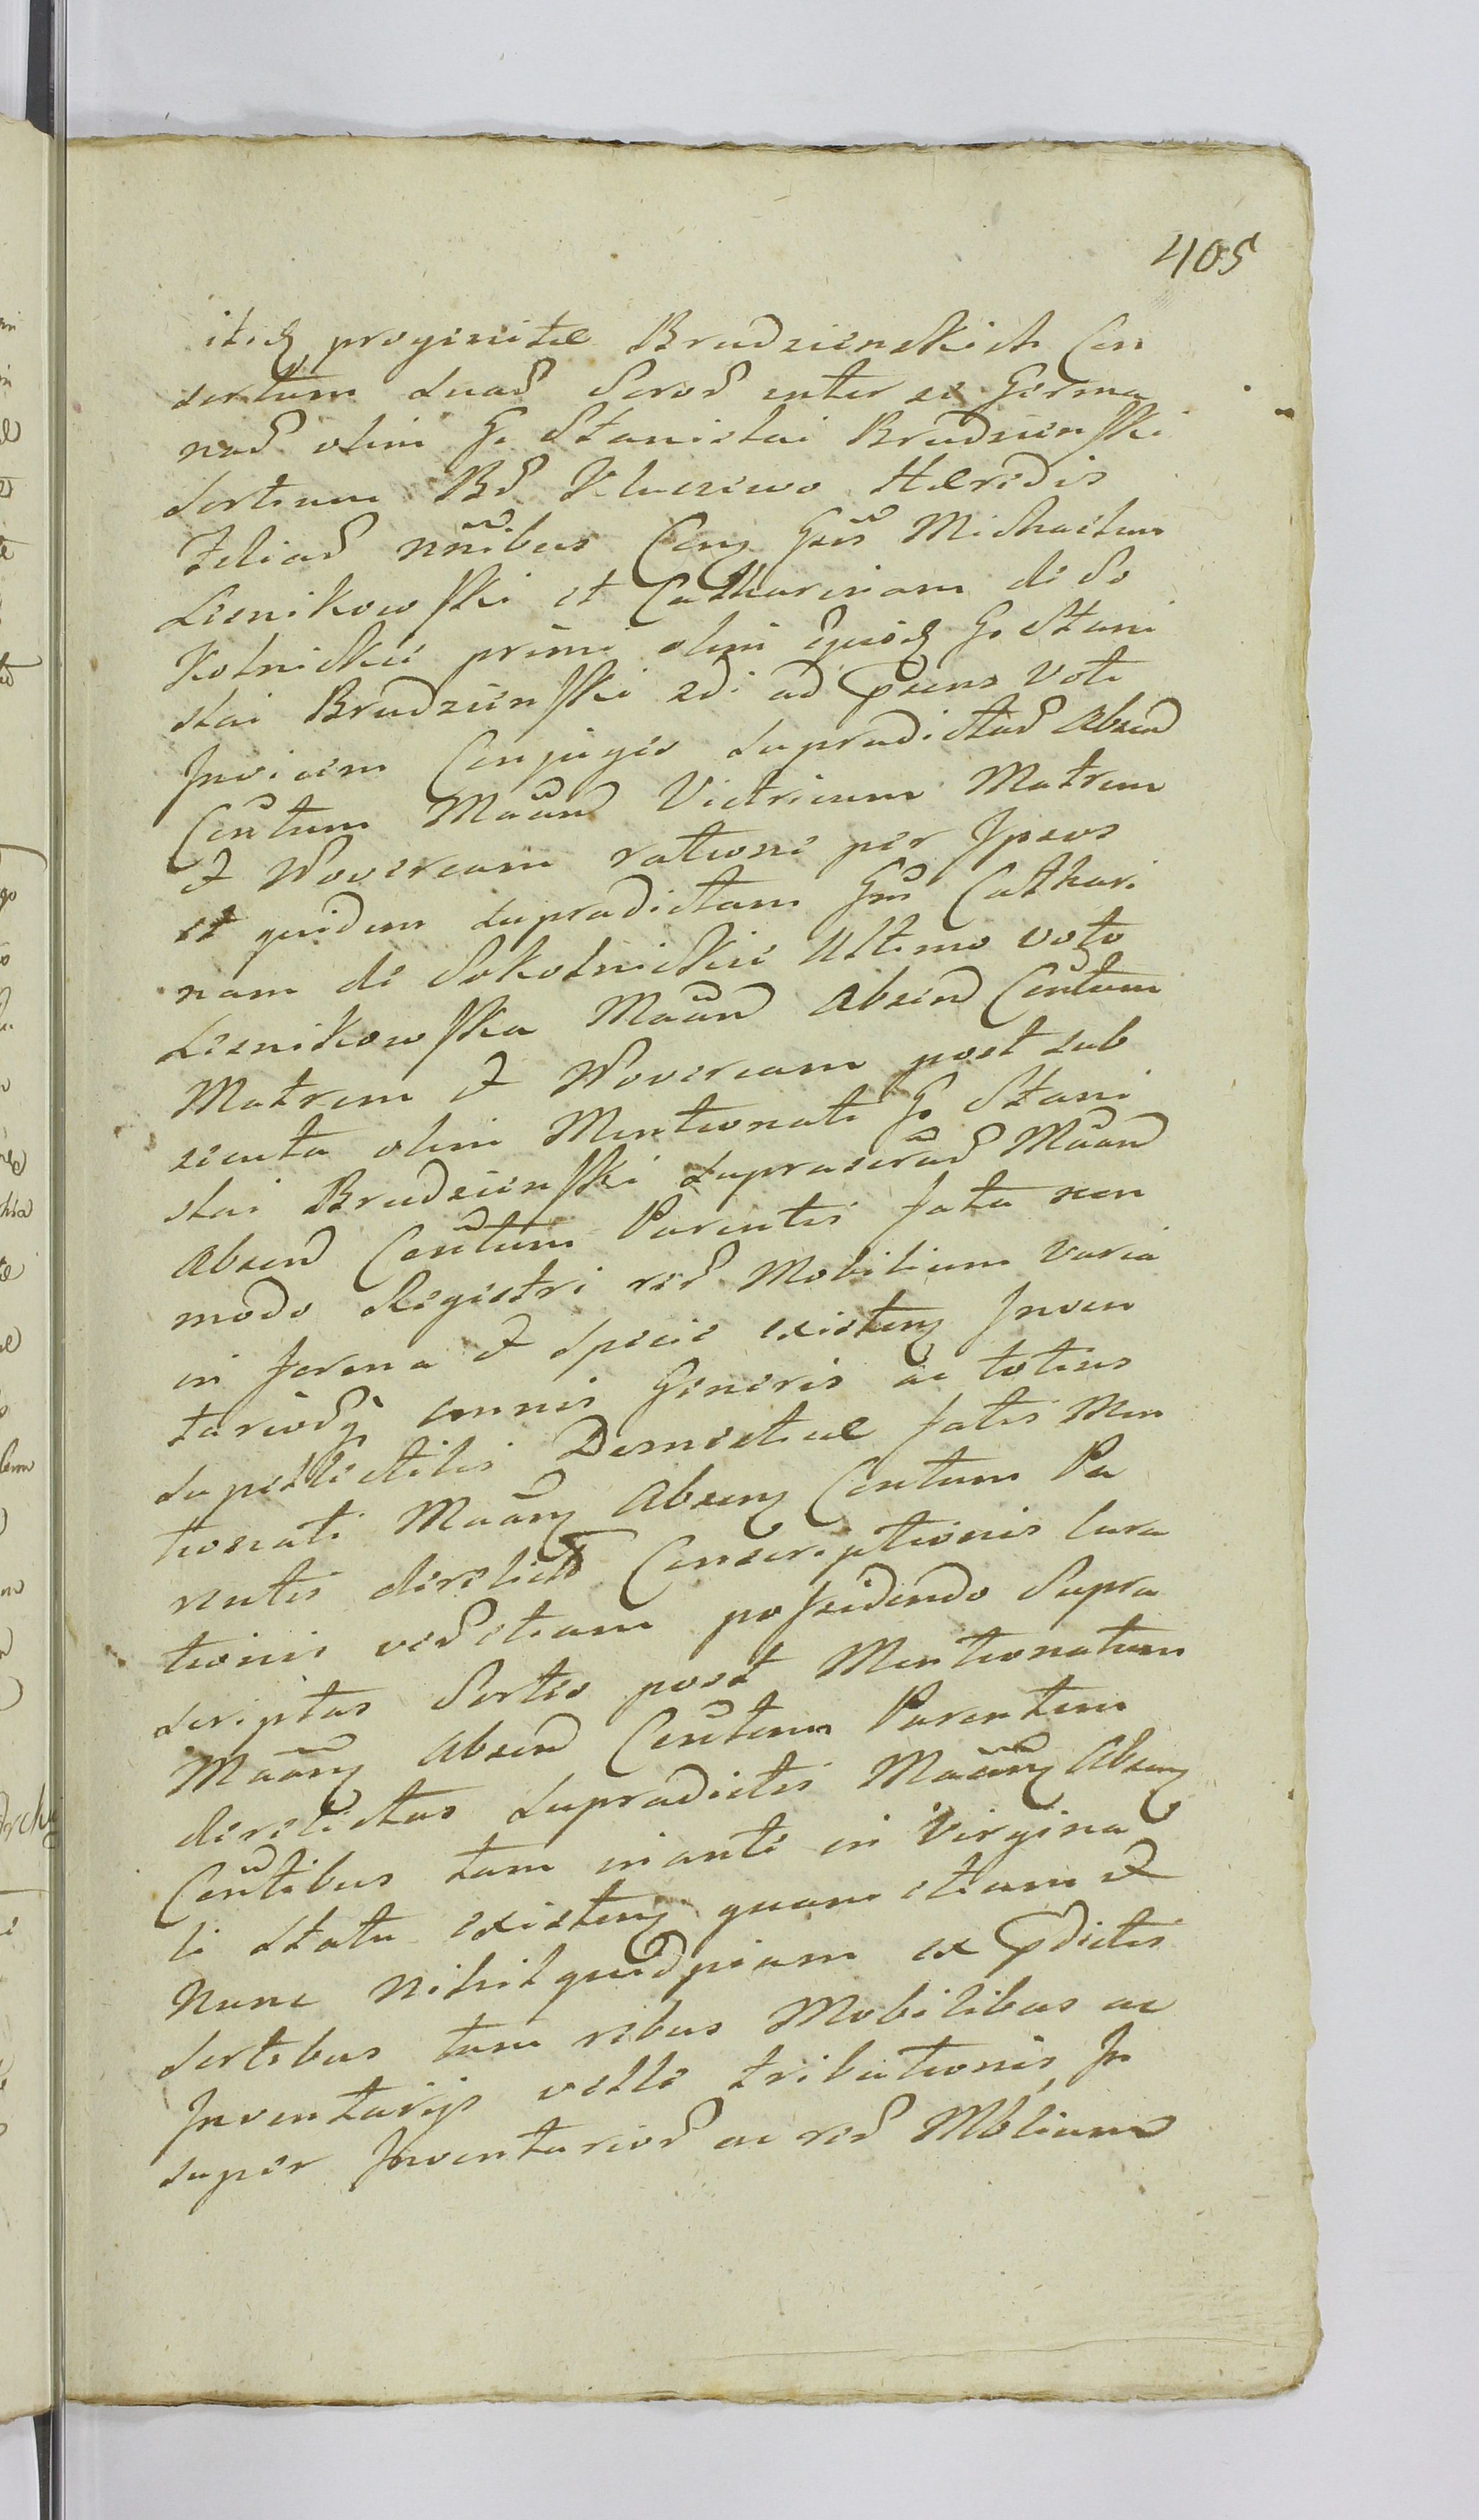 405
itidq progenitæ Brudzienskich Con
sortum duad Sorod inter se Germa
nad olim G. Stanislai Brudzienski
Sortium Bd Kluczewo Hæredis
Filiad nnibus Conq Gsis Michaelum
Lesnikowski et Catharinam de So
kolnickie primi olim ejusdq G. Stani
slai Brudzienski 2di ad præns Voti
Invicem Conjuges supradictad Absend
Contum Maând Victricum Matrem
& Novercam ratione per Ipsos
et quidem supradictam Gm Cathari
nam de Sokolnickie Ultimo voto
Lesnikowska Maând Absend Contum
Matrem & Novercam post sub
secuta olim Mentionati G. Stani
slai Brudzienski supraserad Maând
Absend Contum Parentis Fata non
modo Registri red Mobilium varia
in Forma & Specie existenq Inven
tariodq omnis Generis ac totius
supellectilis Domesticæ Fatis Men
tionati Maânq Absenq Contum Pa
rentis derelictæ Conscriptionis Cura
tionis ved etiam possidendo Supra
scriptas Sortes post Mentionatum
Maânq Absend Contum Parentem
derelictas supradictis Maânq Absenq
Contibus tam in ante in Virgina
li Statu existenq quam etiam &
Nunc Nihil quidpiam ex pdictis
Sortibus tum rebus Mobilibus ac
Inventarijs velle tributionis, In
super Inventariod ac red Mblium